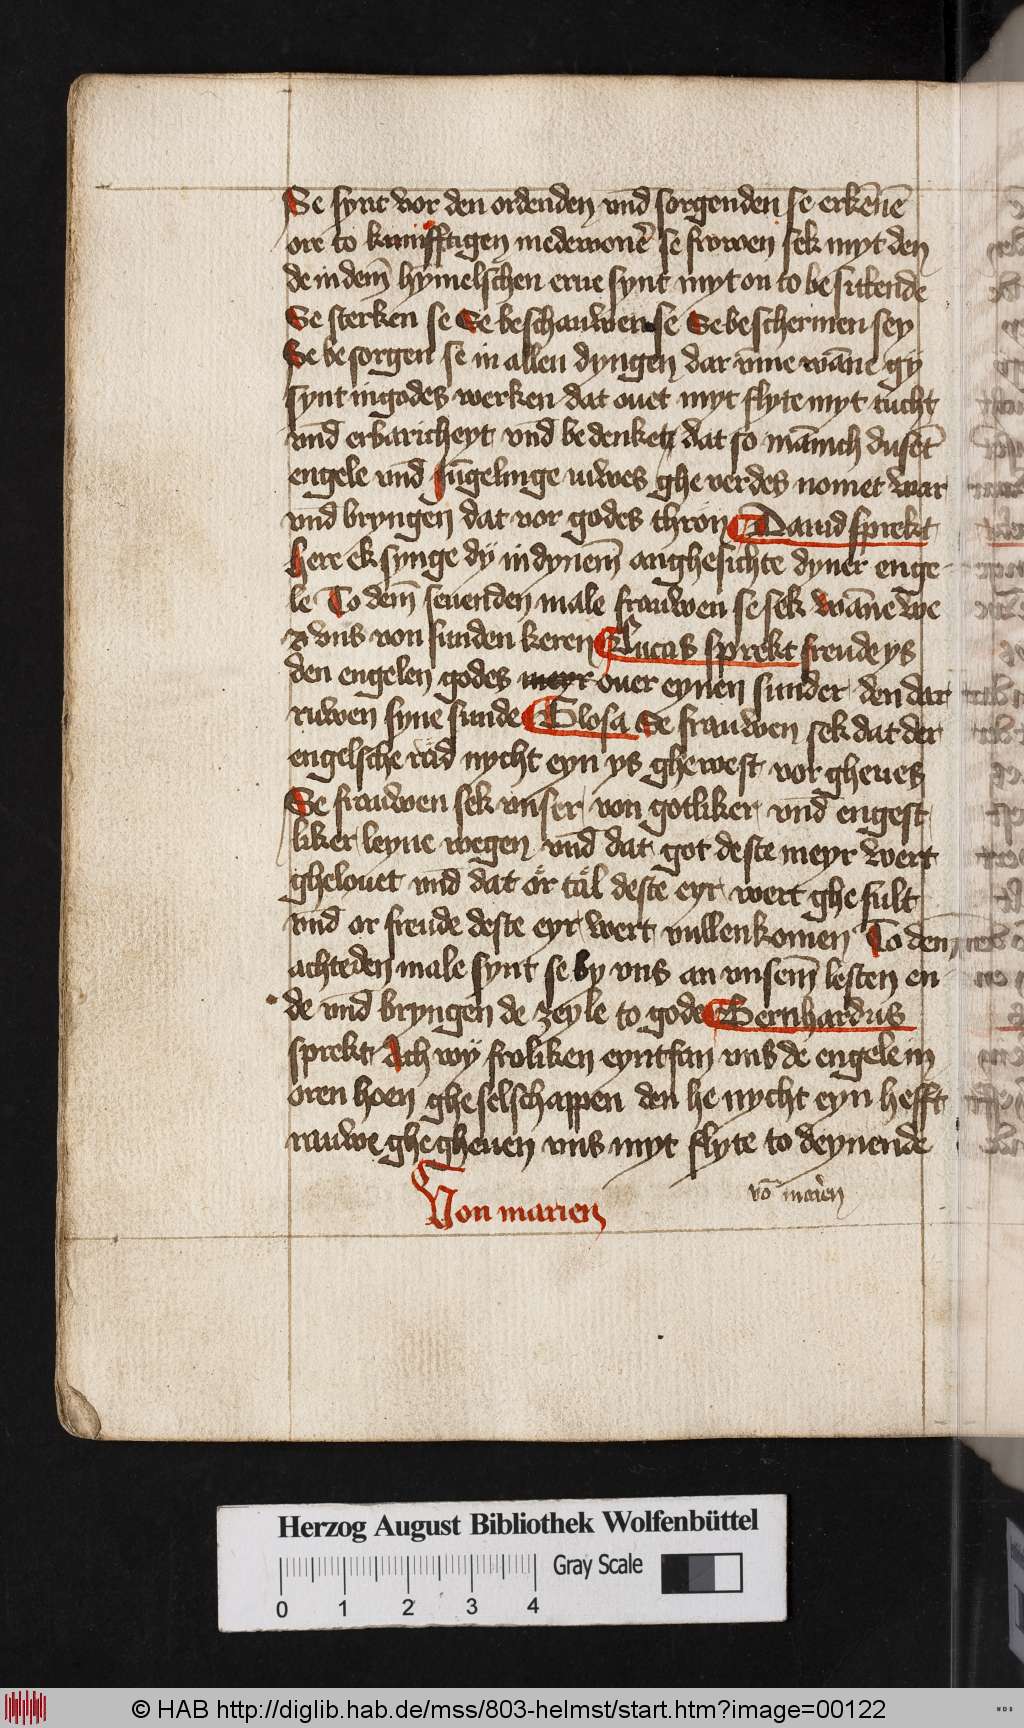 Se synt vor den ordenden vnd sorgenden se erkēnē
ore to kunifftigen medewonēr se frowen sek myt den
de in dem̄ hymelschen erue synt myt on to besittende
Se sterken se Se beschauwen se Se beschermen sey
Se besorgen se in allen dyngen dar vm̄e wāne gy
synt in godes werken dat ouet myt flyte myt tucht
vnd̄ erbaricheyt vnd̄ bedenket dat so mānich dusēt
engele vnd̄ Jūgelinge iuwes ghe verdes nomet war
vnd̄ bryngen dat vor godes thron Dauid sprekt
here ek synge dÿ in dynem̄ anghesichte dyner enge-
le To dem̄ seuenden male frauwen se sek wāne we
vns von sunden keren Lucas sprekt freude ys
den engelen godes meyr ouer eynen sunder den dar
ruwen syne sunde Glosa Se frauwen sek dat der
engelsche rād nycht eyn ys ghewest vorgheues
Se frauwen sek vnser von gotliker vnd̄ engest
liker leyue wegen vnd̄ dat got deste meyr wert
ghelouet vnd̄ dat ör täl deste eyr wert ghe fult
vnd̄ or freude deste eyr wert vullenkomen To dem̄
achteden male synt se by vns an vnsem̄ lesten en-
de vnd̄ bryngen de zeyle to gode Bernhardus
sprekt Ach wÿ froliken eyntfan vns de engele in
oren hoen gheselschappen den he nycht eyn hefft
rauwe ghegheuen vns myt flyte to deynende
Von marien
vō mariēn
Herzog August Bibliothek Wolfenbüttel
Gray Scale
0 1 2 3 4
© HAB http://diglib.hab.de/mss/803-helmst/start.htm?image=00122